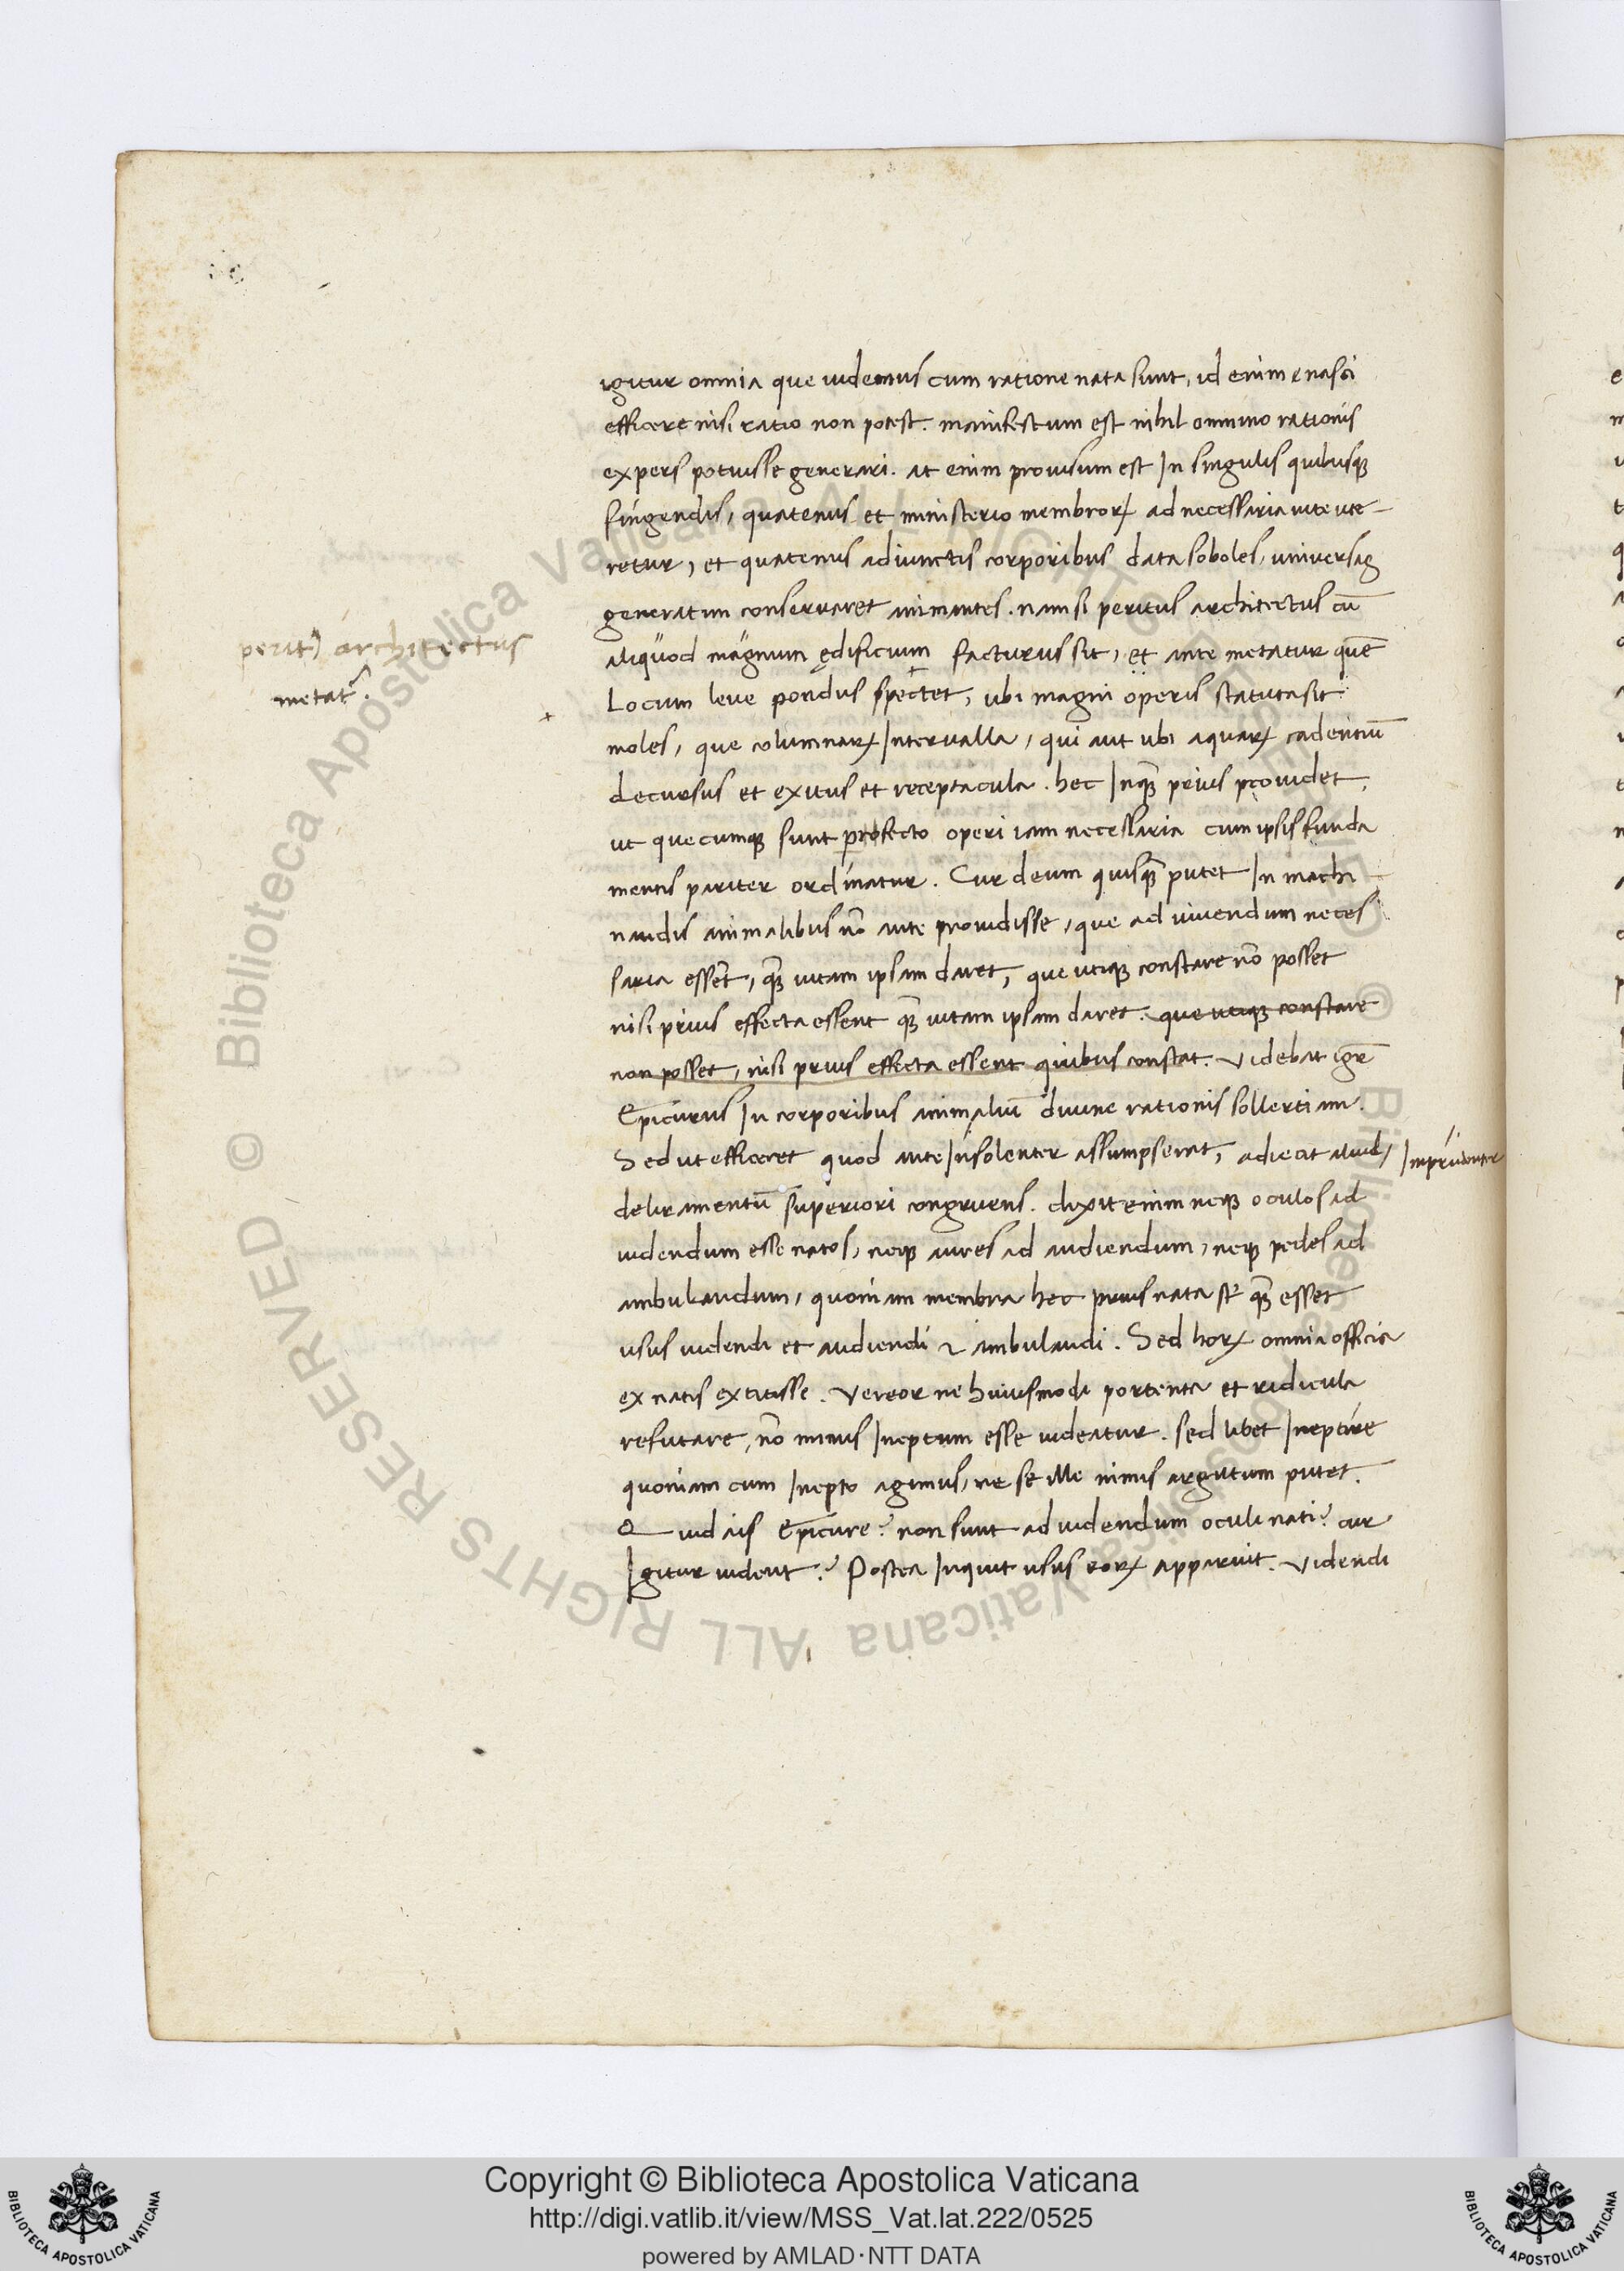 igitur omnia que uidemus cum ratione nata sunt, id enim enasci
efficere nisi ratio non potest. manifestum est nihil omnino rationis
expers potuisse generari. at enim prouisum est In singulis quibusqꝫ
fingendis, quatenus et ministerio membroꝝ ad necessaria uite ute-
retur, et quatenus adiunctis corporibus data soboles, uniuersaq
generatim conseruaret animantes. nam si peritus architectus cū
aliquod magnum ędificium facturus sit, et ante metatur quē
peritꝰ architectus
metat᷑.
Locum leue pondus spectet, ubi magni operis statuta sit
+
moles, que columnaꝝ Interualla, qui aut ubi aquaꝝ cadentiū
decursus et exitus et receptacula. hec Inqꝫ prius prouidet,
ut quecumqꝫ sunt profecto operi iam necessaria cum ipsis funda
mentis pariter ordinatur. Cur deum quisqꝫ putet In machi
nandis animalibus nō ante prouidisse, que ad uiuendum neces
saria essēt, qꝫ uitam ipsam daret, que utiqꝫ constare nō posset
nisi prius effecta essent qꝫ uitam ipsam daret. que utiqꝫ constare
non posset, nisi prius effecta essent quibus constat. Videbat igr̄
Epicurus In corporibus animaliū diuine rationis sollertiam.
Sed ut efficeret quod ante Insolenter assumpserat, adiecit aliud,
Imprudenter
deliramentū superiori congruens. dixit enim neqꝫ oculos ad
uidendum esse natos, neqꝫ aures ad audiendum, neqꝫ pedes ad
ambulandum, quoniam membra hec prius nata st̄ qꝫ esset
usus uidendi et audiendi ⁊ ambulandi. Sed hoꝝ omnia officia
ex natis extitisse. Vereor ne huiusmodi portenta et ridicula
refutare, nō minus Ineptum esse uideatur. sed libet Ineptire
quoniam cum Inepto agimus, ne se ille nimis argutum putet.
Quid ais Epicure? non sunt ad uidendum oculi nati? cur
Igitur uident? Postea Inquit usus eoꝝ apparuit. Videndi
© Biblioteca Apostolica Vaticana ALL RIGHTS RESERVED © Biblioteca Apostolica Vaticana ALL RIGHTS RESERVED
Copyright © Biblioteca Apostolica Vaticana
http://digi.vatlib.it/view/MSS_Vat.lat.222/0525
powered by AMLAD·NTT DATA
BIBLIOTECA APOSTOLICA VATICANA
BIBLIOTECA APOSTOLICA VATICANA